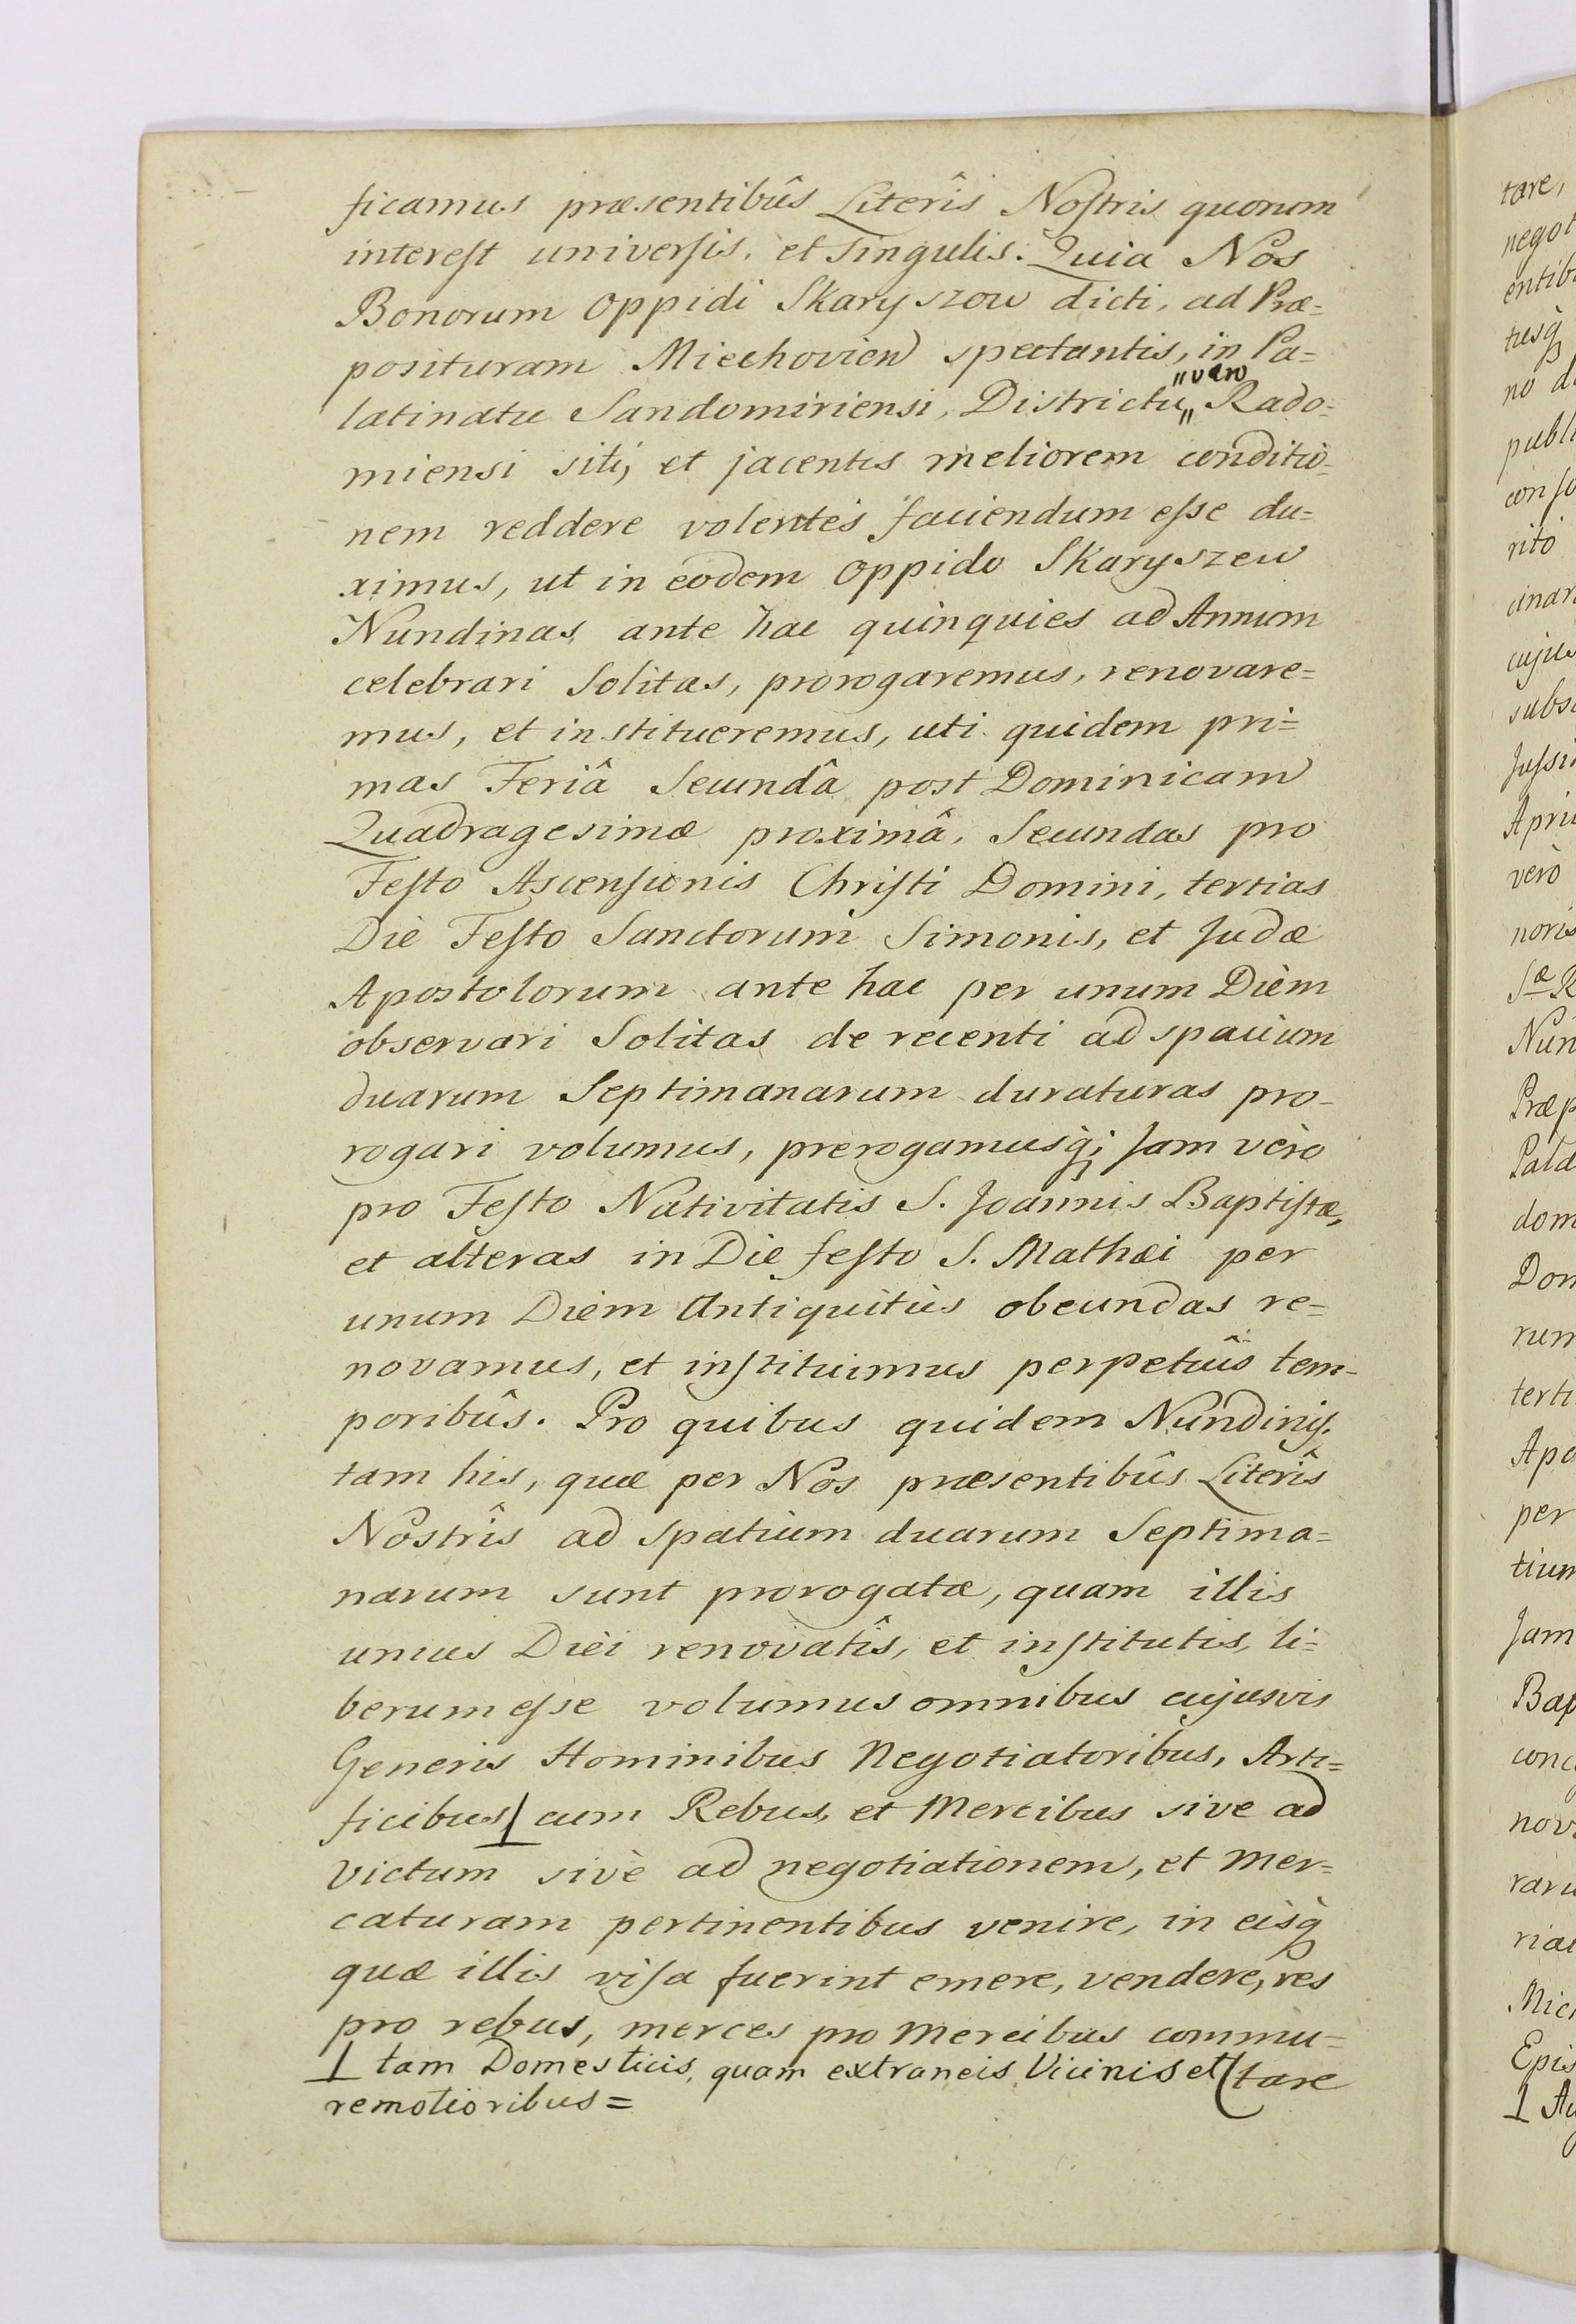 ficamus præsentibûs Literîs Nostris quorum
interest universis, et singulis: Quia Nos
Bonorum Oppidi Skaryszow dicti, ad Præ=
posituram Miechovien spectantis, in Pa=
latinatu Sandomiriensi, Districtu „vero Rado=
miensi siti, et jacentis meliorem conditio=
nem reddere volentes faciendum esse du=
ximus, ut in eodem Oppido Skaryszew
Nundinas, ante hac quinquies ad Annum
celebrari Solitas, prorogaremus, renovare=
mus, et institueremus, uti quidem pri=
mas Feriâ Secundâ post Dominicam
Quadragesimæ proximâ, Secundas pro
Festo Ascensionis Christi Domini, tertias
Die Festo Sanctorum Simonis, et Judæ
Apostolorum ante hac per unum Diem
observari Solitas de recenti ad spacium
duarum Septimanarum duraturas pro-
rogari volumus, prerogamusq; Jam vero
pro Festo Nativitatis S. Joannis Baptistæ,
et alteras in Die festo S. Mathæi per
unum Diem Antiquitùs obeundas re=
novamus, et instituimus perpetuîs tem-
poribûs. Pro quibus quidem Nundinis,
tam his, quæ per Nos præsentibûs Literîs
Nostrîs ad Spatium duarum Septima=
narum sunt prorogatæ, quam illis
unius Diei renovatîs, et institutis, li=
berum esse volumus omnibus cujusvis
Generis Hominibus Negotiatoribus, Arti=
ficibus⊥ cum Rebus, et Mercibus sive ad
Victum sivè ad negotiationem, et Mer=
caturam pertinentibus venire, in eisq
quæ illis visa fuerint emere, vendere, res
pro rebus, merces pro Mercibus commu=
⊥ tam Domesticis, quam extraneis Vicinis et (tare
remotioribus=
tare,
negot
entib
tusq
no d
publi
conso
rito
cinar
cujus
subs
Jussi
April
verò
noris
Sæ R
Nun
Præp
Pala
dom
Dom
rum
terti
Apo
per
tium
Jam
Bap
conc
nov
raru
riae
Mic
Epis
⊥ Au